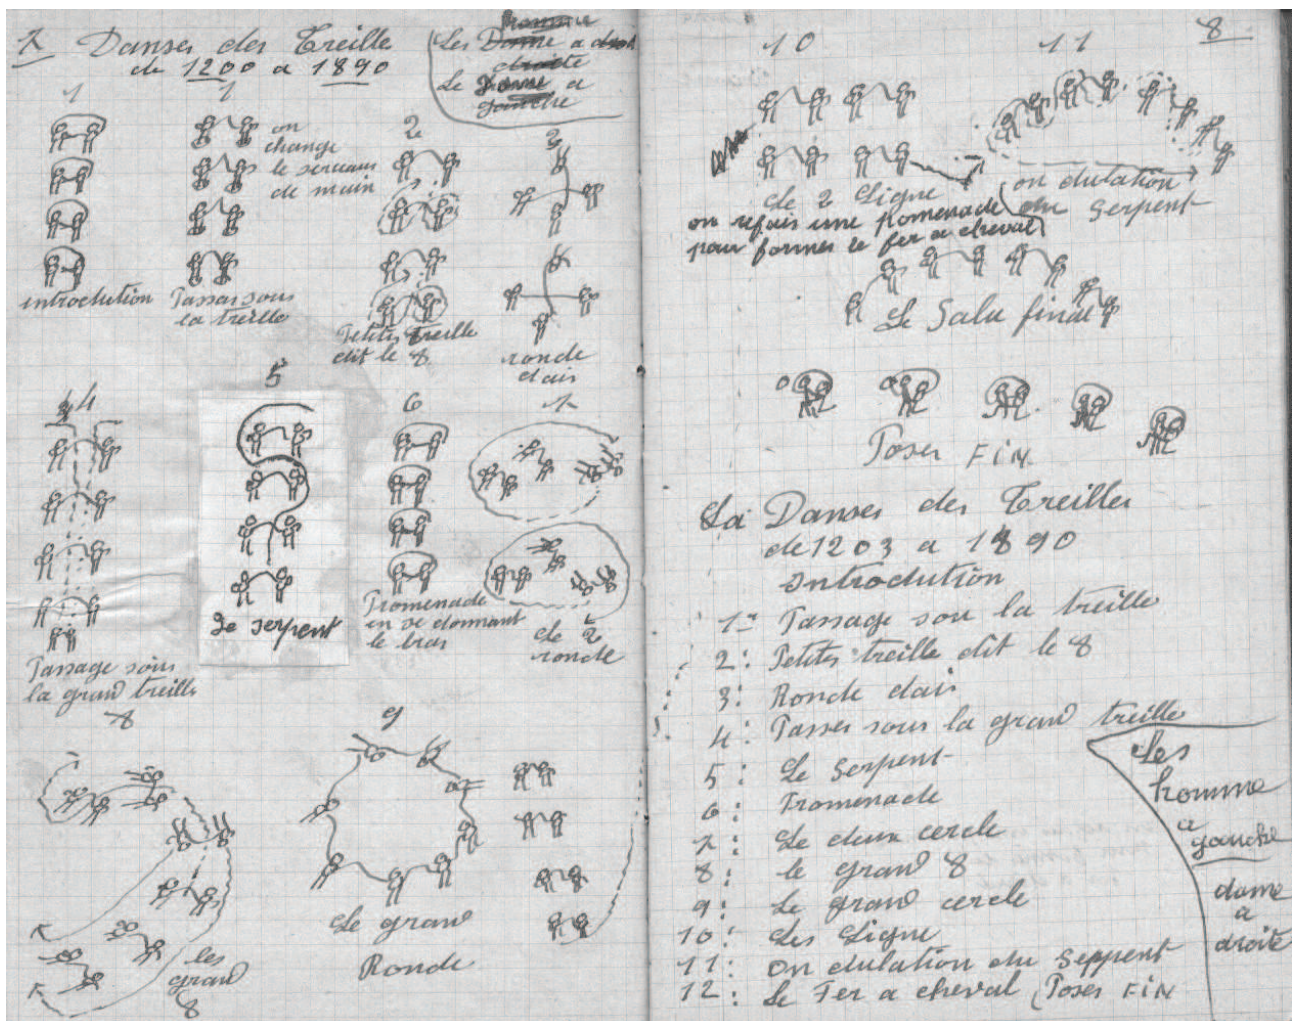 7 Danses des Treille
de 1200 a 1890
homme
Les Dame a droit
droite
Le Dame a
gauche
1
1
on
change
le serceaus
de main
2
3
introdution
Passas sous
la treille
Petites treille
dit le 8
ronde
dais
4
5
6
7
Passage sous
la grand treille
Le serpent
Promenade
en se donnant
le bras
de 2
ronde
8
9
les
grand
8
Le grand
Ronde
8
10
11
de 2 Ligne
on refais une promenade
pour former le fer a cheval
on dulation
du Serpent
Le Salu final
Poser FIN
La Danses des Treilles
de 1203 a 1890
introdution
1er Passage sou la treille
2: Petites treille dit le 8
3: Ronde dais
4: Passer sous la grand treille
5: Le Serpent
6: Promenade
7: Le deux cercle
8: le grand 8
9: Le grand cercle
10: Les Ligne
11: on dulation du Seppent
12: Le Fer a cheval (Poser FIN
Les
homme
a
gauche
dame
a
droite